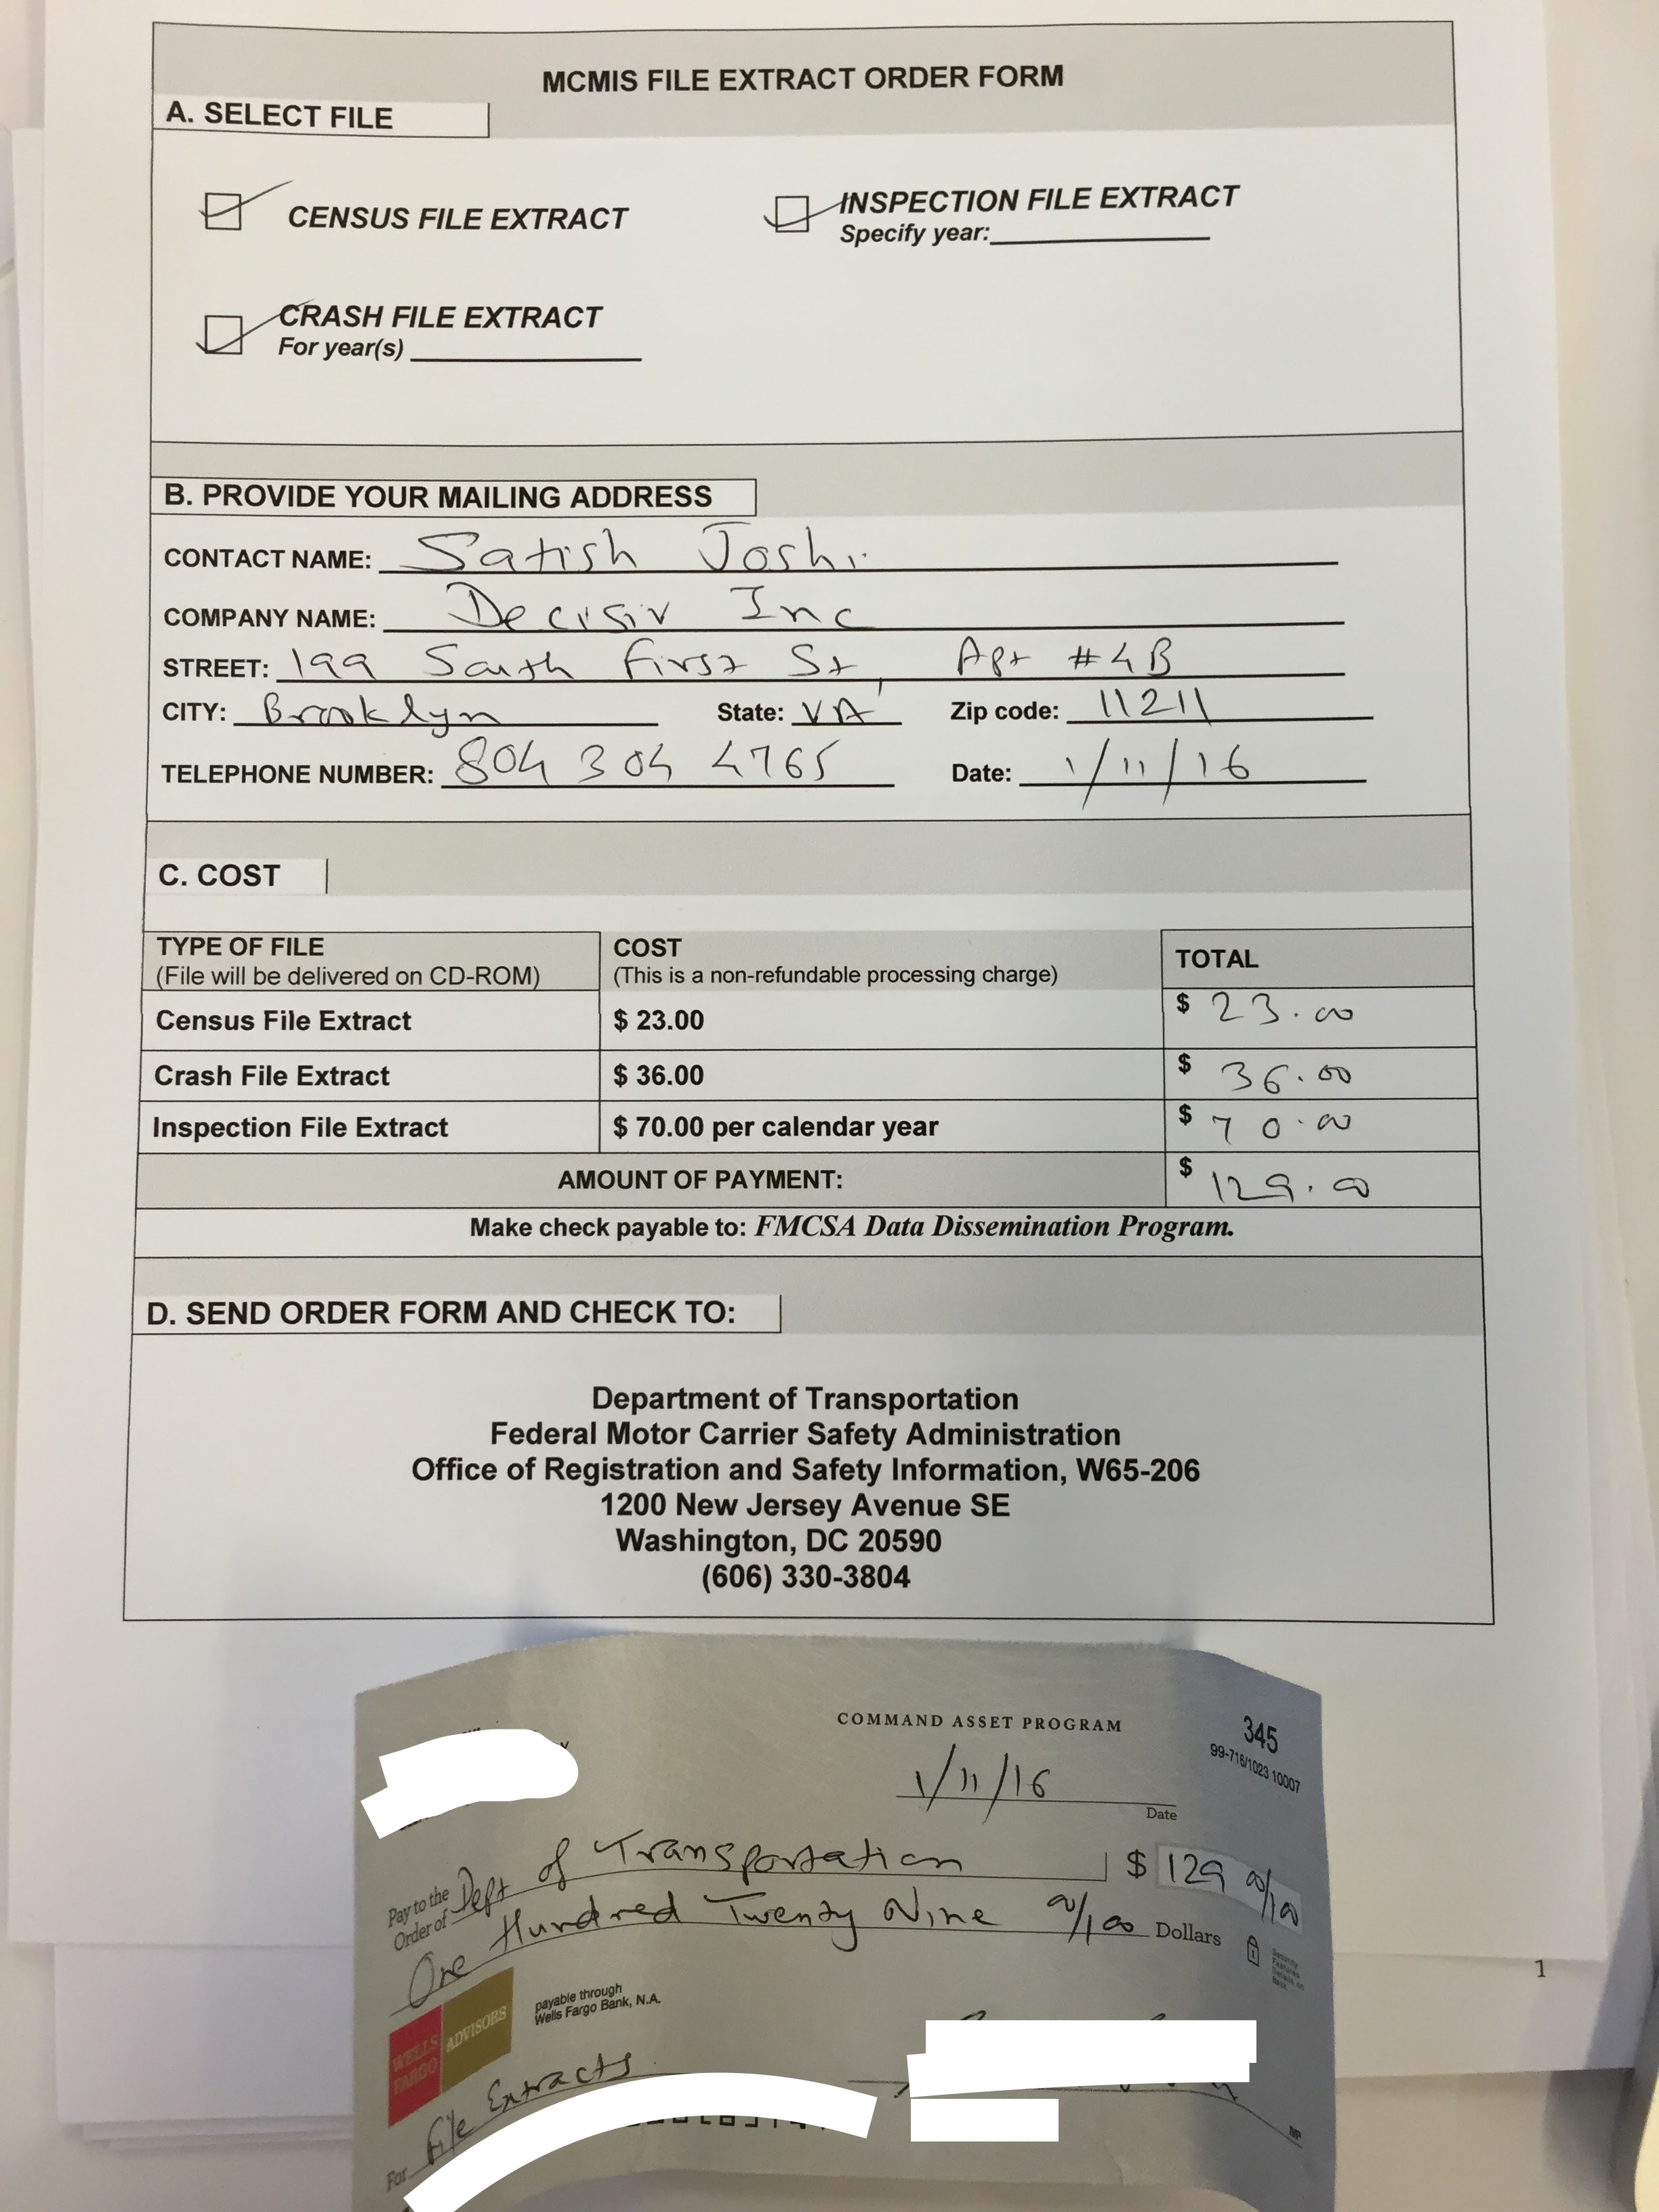 MCMIS FILE EXTRACT ORDER FORM
A. SELECT FILE
CENSUS FILE EXTRACT
INSPECTION FILE EXTRACT
Specify year:
CRASH FILE EXTRACT
For year(s)
B. PROVIDE YOUR MAILING ADDRESS
CONTACT NAME: Satish Joshi
COMPANY NAME: Decisiv Inc
STREET: 199 South First St, Apt #4B
CITY: Brooklyn State: VA Zip code: 11211
TELEPHONE NUMBER: 804 304 4765 Date: 1/11/16
C. COST
TYPE OF FILE
(File will be delivered on CD-ROM)
COST
(This is a non-refundable processing charge)
TOTAL
Census File Extract $ 23.00 $ 23.00
Crash File Extract $ 36.00 $ 36.00
Inspection File Extract $ 70.00 per calendar year $ 70.00
AMOUNT OF PAYMENT: $ 129.00
Make check payable to: FMCSA Data Dissemination Program.
D. SEND ORDER FORM AND CHECK TO:
Department of Transportation
Federal Motor Carrier Safety Administration
Office of Registration and Safety Information, W65-206
1200 New Jersey Avenue SE
Washington, DC 20590
(606) 330-3804
COMMAND ASSET PROGRAM
345
99-716/1023 10007
1/11/16
Date
Pay to the
Order of Dept of Transportation $ 129 00/100
One Hundred Twenty Nine 00/100 Dollars
Security
Features
Details on
Back.
WELLS
FARGO
ADVISORS
payable through
Wells Fargo Bank, N.A.
For File Extracts
MP
1